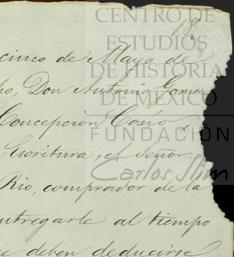 CENTRO DE
ESTUDIOS
DE HISTORIA
DE MÉXICO
FUNDACIÓN
Carlos Slim
18
cinco de Mayo de
Don Antonio Gomez
Concepcion Cosio
Escritura, el Señor
Rio, comprador de la
entregarle al tiempo
se deben deducirse